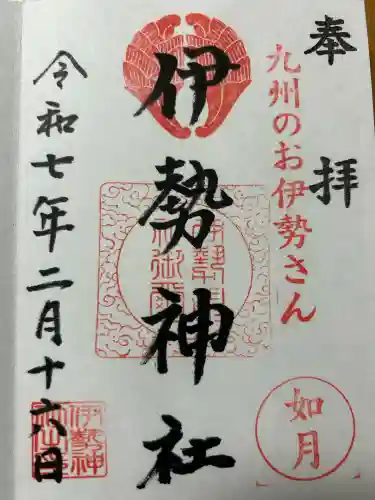 奉拝
九州のお伊勢さん
如月
伊勢神社
令和七年二月十六日